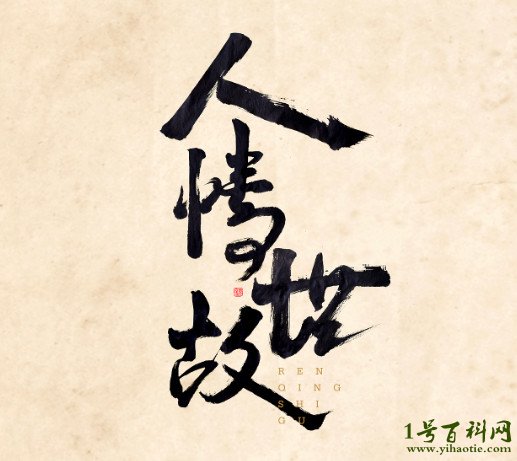 人情世故
REN
QING
SHI
GU
1号百科网
www.yihaotie.com